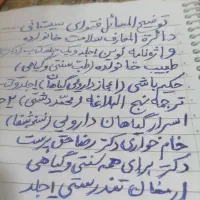 توضیح المسائل فتوای سیستانی
دائرة المعارف سلامت خانواده
واژه نامه کوچن اجلد
طبیب خانواده (طب سنتی و گیاهی)
حکیم باشی (اعجاز داروی گیاهان) اجلد
ترجمه نهج البلاغه (محمد دشتی) ۲جلد
اسرار گیاهان دارویی
خام خواری دکتر رضا حق پرست
دکتر برای همه سنتی و گیاهی
ارمغان تندرستی اجلد